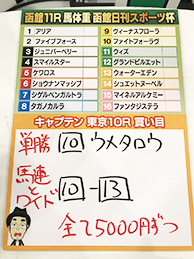 函館11R 馬体重 函館日刊スポーツ杯
1 アリア
2 ファイブフォース
3 ジュニパーベリー
4 スマイルスター
5 ケワロス
6 ショウナンマッシブ
7 シゲルベンガルトラ
8 タガノカルラ
9 ヴィーナスフローラ
10 ファイトフォーヴ
11 ウィズ
12 グランドビルエット
13 ウォーターエデン
14 シュウジヒマワリ
15 マイネルアルケミー
16 ファンタジステラ
キャプテン 東京10R 買い目
単勝 10 ウメタロウ
馬連とワイド 10-13
全て5000円ずつ